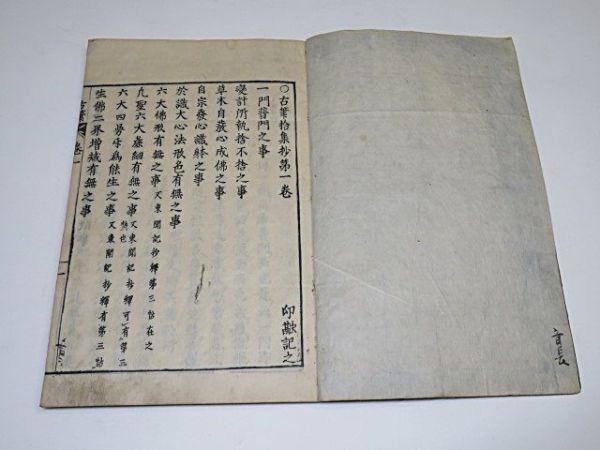 〇古筆拾集抄第一卷
印融記之
一門普門之事
遍計所執捨不捨之事
草木自發心成佛之事
自宗發心識躰之事
於識大心法形色有無之事
六大佛形有無之事 又東聞記抄釋第三
凡聖六大麁細有無之事 又東聞記抄釋
六大四曼互為能生之事
生佛二界增減有無之事 又東聞記抄釋有第三
卷一